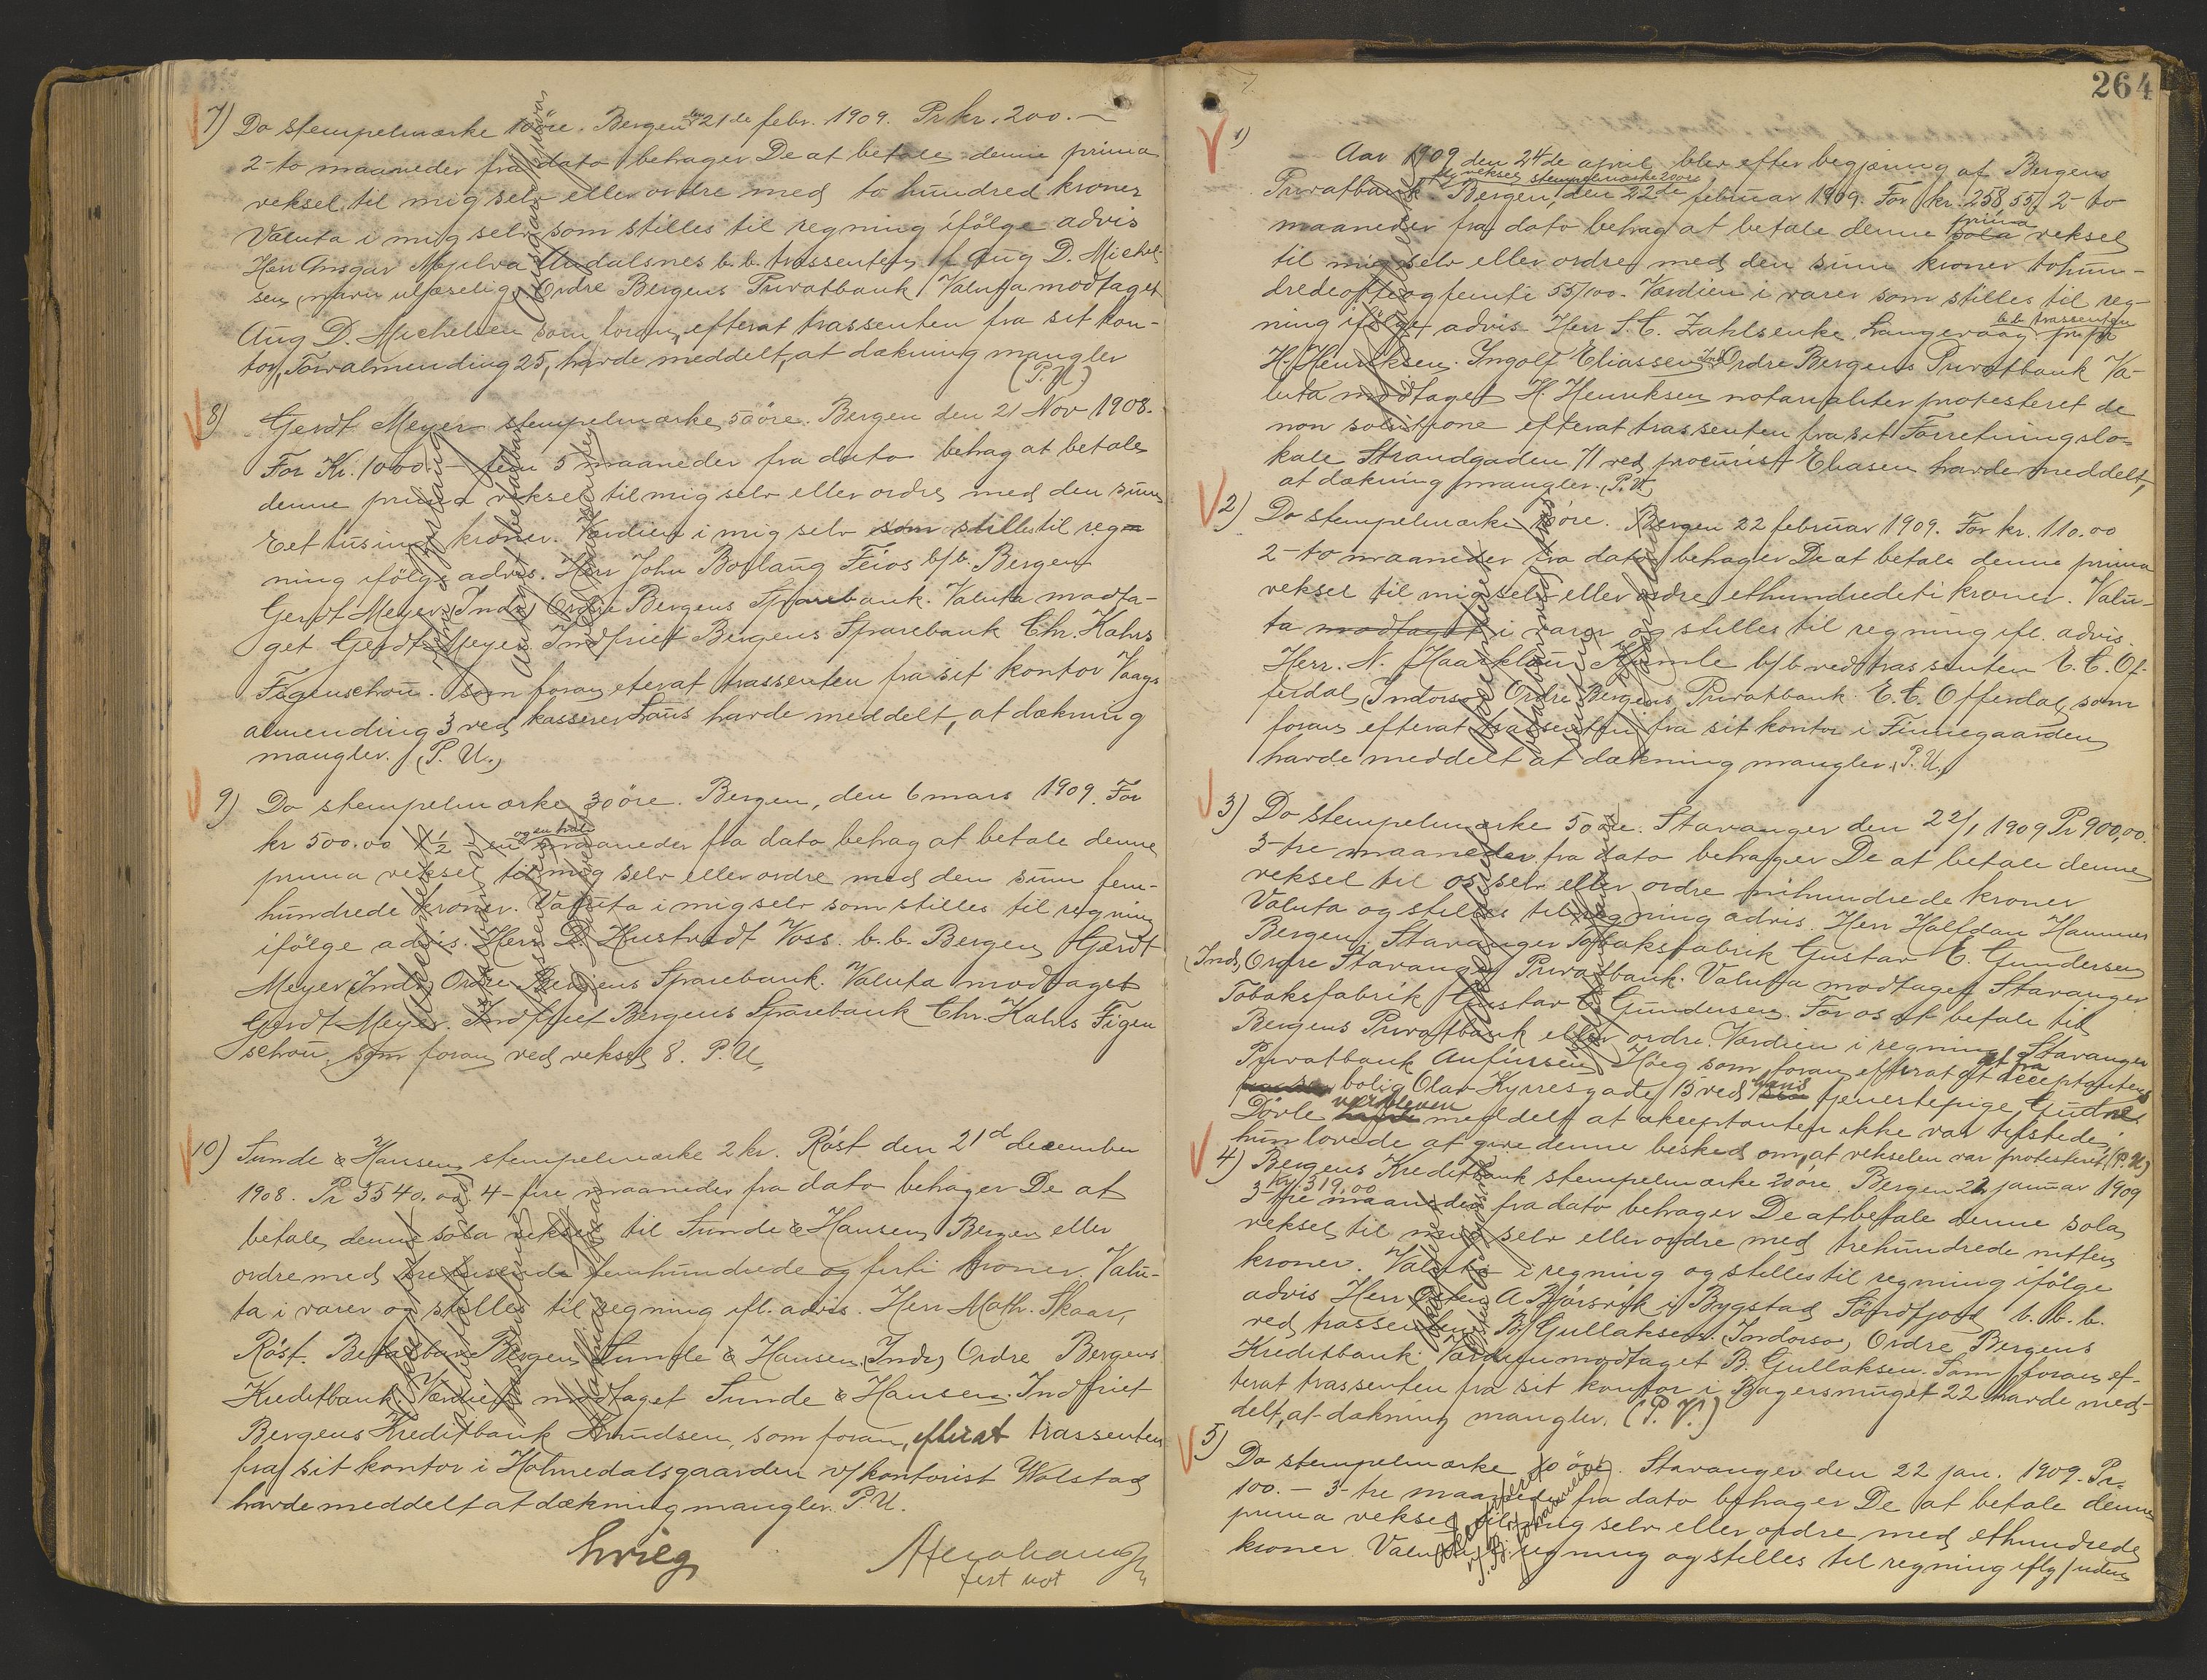 7) Do stempelmærke 10öre. Bergen den 21de febr. 1909. Pr kr. 200.—
2-to maaneder fra dato behager De at betale denne prima
veksel til mig selv eller ordre med to hundred kroner
Valuta i mig selv som stilles til regning ifölge advis
Herr Ansgar Mjelva Åndalsnes b.b. trassenten Aug D. Michel-
sen (navn ulæselig) Ordre Bergens Privatbank Valuta modtaget
Aug D. Michelsen som foran, efterat trassenten fra sit kon-
tor, Torvalmending 25, havde meddelt, at dækning mangler
(P.U.)
8) Gerdt Meyer stempelmærke 50öre. Bergen den 21 Nov 1908.
For Kr. 1000.— fem 5 maaneder fra dato behag at betale
denne prima veksel til mig selv eller ordre med den sum
Eet tusind kroner. Værdien i mig selv som stilles til reg-
ning ifölge advis. Herr John Borlaug Feios b/b. Bergen
Gerdt Meyer (Inds) Ordre Bergens Sparebank. Valuta modta-
get Gerdt Meyer Indfriet Bergens Sparebank Chr. Kahrs
Figenschou. Som foran eterat trassenten fra sit kontor Vaags
almending 3 ved kasserer Haus havde meddelt, at dækning
mangler. (P.U.)
9) Do stempelmærke 30öre. Bergen, den 6 mars 1909. For
kr 500.00 1½ - en og en halv maaneder fra dato behag at betale denne
prima veksel til mig selv eller ordre med den sum fem-
hundrede kroner. Valuta i mig selv som stilles til regning
ifölge advis. Herr D. Hustvedt Voss. b.b. Bergen Gerdt
Meyer (Inds) Ordre Bergens Sparebank. Valuta modtaget
Gerdt Meyer. Indfriet Bergens Sparebank Chr. Kahrs Figen
schou, som foran ved veksel 8. P.U.
10) Sunde & Hansen stempelmærke 2 kr. Röst den 21d december
1908. Pr 3540.00 4-fire maaneder fra dato behager De at
betale denne sola veksel til Sunde & Hansen Bergen eller
ordre med tretusende femhundrede og forti kroner. Valu-
ta i varer og stilles til regning ifl. advis. Herr Math. Skaar,
Röst. Betalbar Bergen Sunde & Hansen, (Inds) Ordre Bergens
Kreditbank. Værdien modtaget Sunde & Hansen. Indfriet
Bergens Kreditbank Knudsen, som foran, efterat trassenten
fra sit kontor i Holmedalsgaarden v/ kontorist Wolstad
havde meddelt at dækning mangler. P.U.
test not
264
1) Aar 1909 den 24de april blev efter begjæring af Bergens
Privatbank ny veksel stempelmærke 20öre Bergen, den 22de februar 1909. For kr. 258 55, 2-to
maaneder fra dato behag at betale denne sola prima veksel
til mig selv eller ordre med den sum kroner tohun-
dredeotteogfemti 55/100. Værdien i varer som stilles til reg-
ning ifölge advis Herr S. C. Zahlsenke, Langevaag b.b. trassenten pr. pr
H. Henriksen. Ingolf Eliassen Inds Ordre Bergens Privatbank Va-
luta modtaget H. Henriksen notarialiter protesteret de
non solutione efterat trassenten fra sit Forretningslo-
kale Strandgaden 71 ved procurist Eliasen havde meddelt,
at dækning mangler. (P.U.)
2) Do stempelmærke 10öre. Bergen 22 februar 1909. For kr. 110.00
2-to maaneder fra dato behager De at betale denne prima
veksel til mig selv eller ordre ethundredeti kroner. Valu-
ta modtaget i varer og stilles til regning ifl. advis.
Herr. N. Haarklau Humle b/b ved trassenten E. C. Of-
ferdal, Indorso, Ordre Bergens Privatbank E. C. Offerdal, som
foran efterat trassenten fra sit kontor i Finnegaarden
havde meddelt at dækning mangler. P.U.
3) Do stempelmærke 50öre. Stavanger den 22/1 1909 Pr 900,00.
3-tre maaneder fra dato behager De at betale denne
veksel til os selv eller ordre nihundrede kroner
Valuta og stilles til regning advis. Herr Halfdan Hammer
Bergen Stavanger Tobaksfabrik Gustav E. Gundersen
(Inds), Ordre Stavanger Privatbank. Valuta modtaget Stavanger
Tobaksfabrik Gustav E Gundersen. For os at betale til
Bergens Privatbank eller ordre. Værdien i regning Stavanger
Privatbank Höeg som foran efterat at fra acceptantens
bolig Olav Kyrresgade 15 ved hans tjenestepige
Dövle var bleven meddelt at akceptanten ikke var tilstede;
hun lovede at give denne besked om, at vekselen var protesteret (P.U.)
4) Bergens Kreditbank stempelmærke 20öre. Bergen 22 januar 1909
Kr 319.00
3-tre maaneder fra dato behager De at betale denne sola
veksel til mig selv eller ordre med trehundrede nitten
kroner. Valuta i regning og stilles til regning ifölge
advis Herr Osten A Björsvik i Bygstad Söndfjord b. b. b.
ved trassenten B. Gullaksen. (Indorso) Ordre Bergens
Kreditbank. Værdien modtaget B. Gullaksen. Som foran ef-
terat trassenten fra sit kontor i Bagersmuget 22 havde med-
delt, at dækning mangler. (P.U.)
5) Do stempelmærke 10 öre. Stavanger den 22 jan. 1909. Pr.
100.— 3-tre maaneder fra dato behager De at betale denne
prima veksel til mig selv eller ordre med ethundrede
kroner. Valuta i regning og stilles til regning iflg/uden